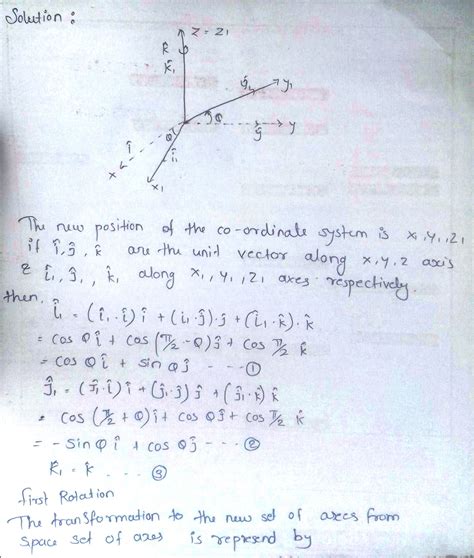 Solution :
Z = Z1
k̂
k̂1
ĵ1
y1
θ
ĵ
y
î
θ
î1
x
x1
The new position of the co-ordinate system is x1, y1, z1
if î, ĵ, k̂ are the unit vector along x, y, z axis
& î1, ĵ1, k̂1 along x1, y1, z1 axes respectively.
then, î1 = (î1·î) î + (î1·ĵ) ĵ + (î1·k̂)·k̂
= cos θ î + cos (π/2 - θ) ĵ + cos π/2 k̂
= cos θ î + sin θ ĵ --- ①
ĵ1 = (ĵ1·î) î + (ĵ1·ĵ) ĵ + (ĵ1·k̂) k̂
= cos (π/2 + θ) î + cos θ ĵ + cos π/2 k̂
= - sin θ î + cos θ ĵ --- ②
k̂1 = k̂ --- ③
first Rotation
The transformation to the new set of axes from
space set of axes is represend by